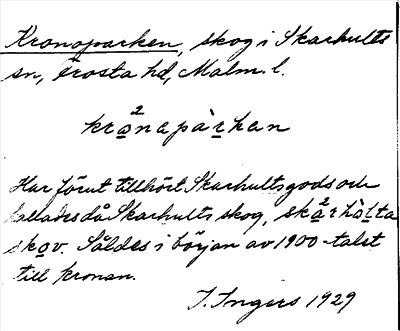 Kronoparken, skog i Skarhults
sn, Frosta hd, Malm. l.
kro²napàrkan
Har förut tillhört Skarhults gods och
kallades då Skarhults skog, ska²rhòlta
skov. Såldes i början av 1900-talet
till kronan.
I. Ingers 1929